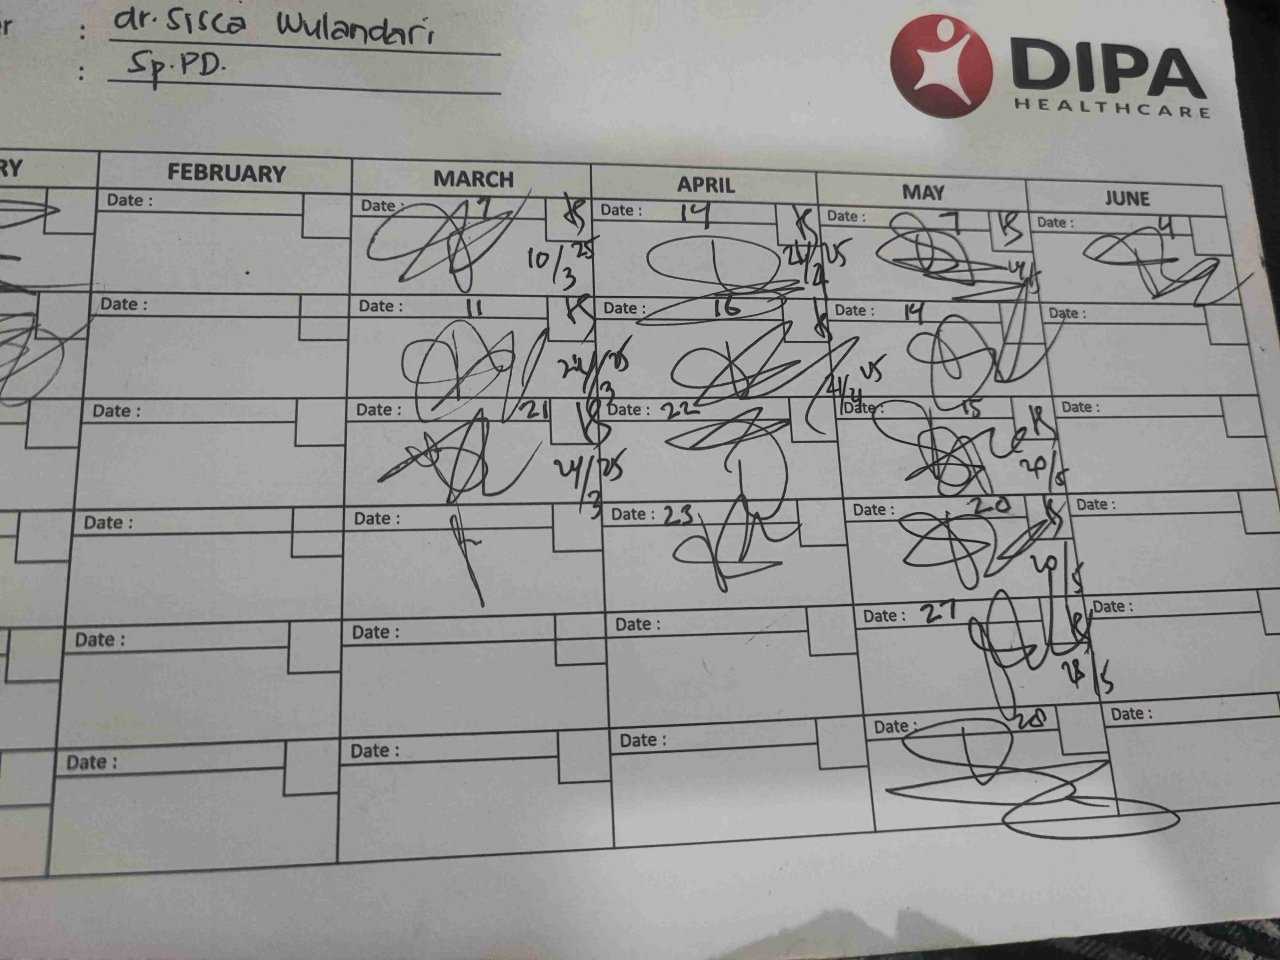 r : dr. Sisca Wulandari
: Sp.PD.
DIPA
HEALTHCARE
RY FEBRUARY MARCH APRIL MAY JUNE
Date : Date : 7 Date : 14 Date : 7 Date : 4
10/3 25
Date : Date : 11 Date : 16 Date : 14 Date :
24/3 25
Date : Date : 21 Date : 22 Date : 15 Date :
24/3 25 20/5
Date : Date : Date : 23 Date : 20 Date :
20/5
Date : Date : Date : Date : 27 Date :
28/5
Date : Date : Date : Date : 28 Date :